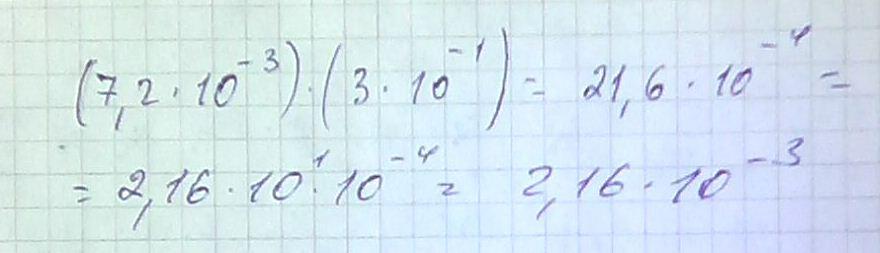 (7,2·10⁻³)·(3·10⁻¹) = 21,6·10⁻⁴ =
= 2,16·10¹·10⁻⁴ = 2,16·10⁻³